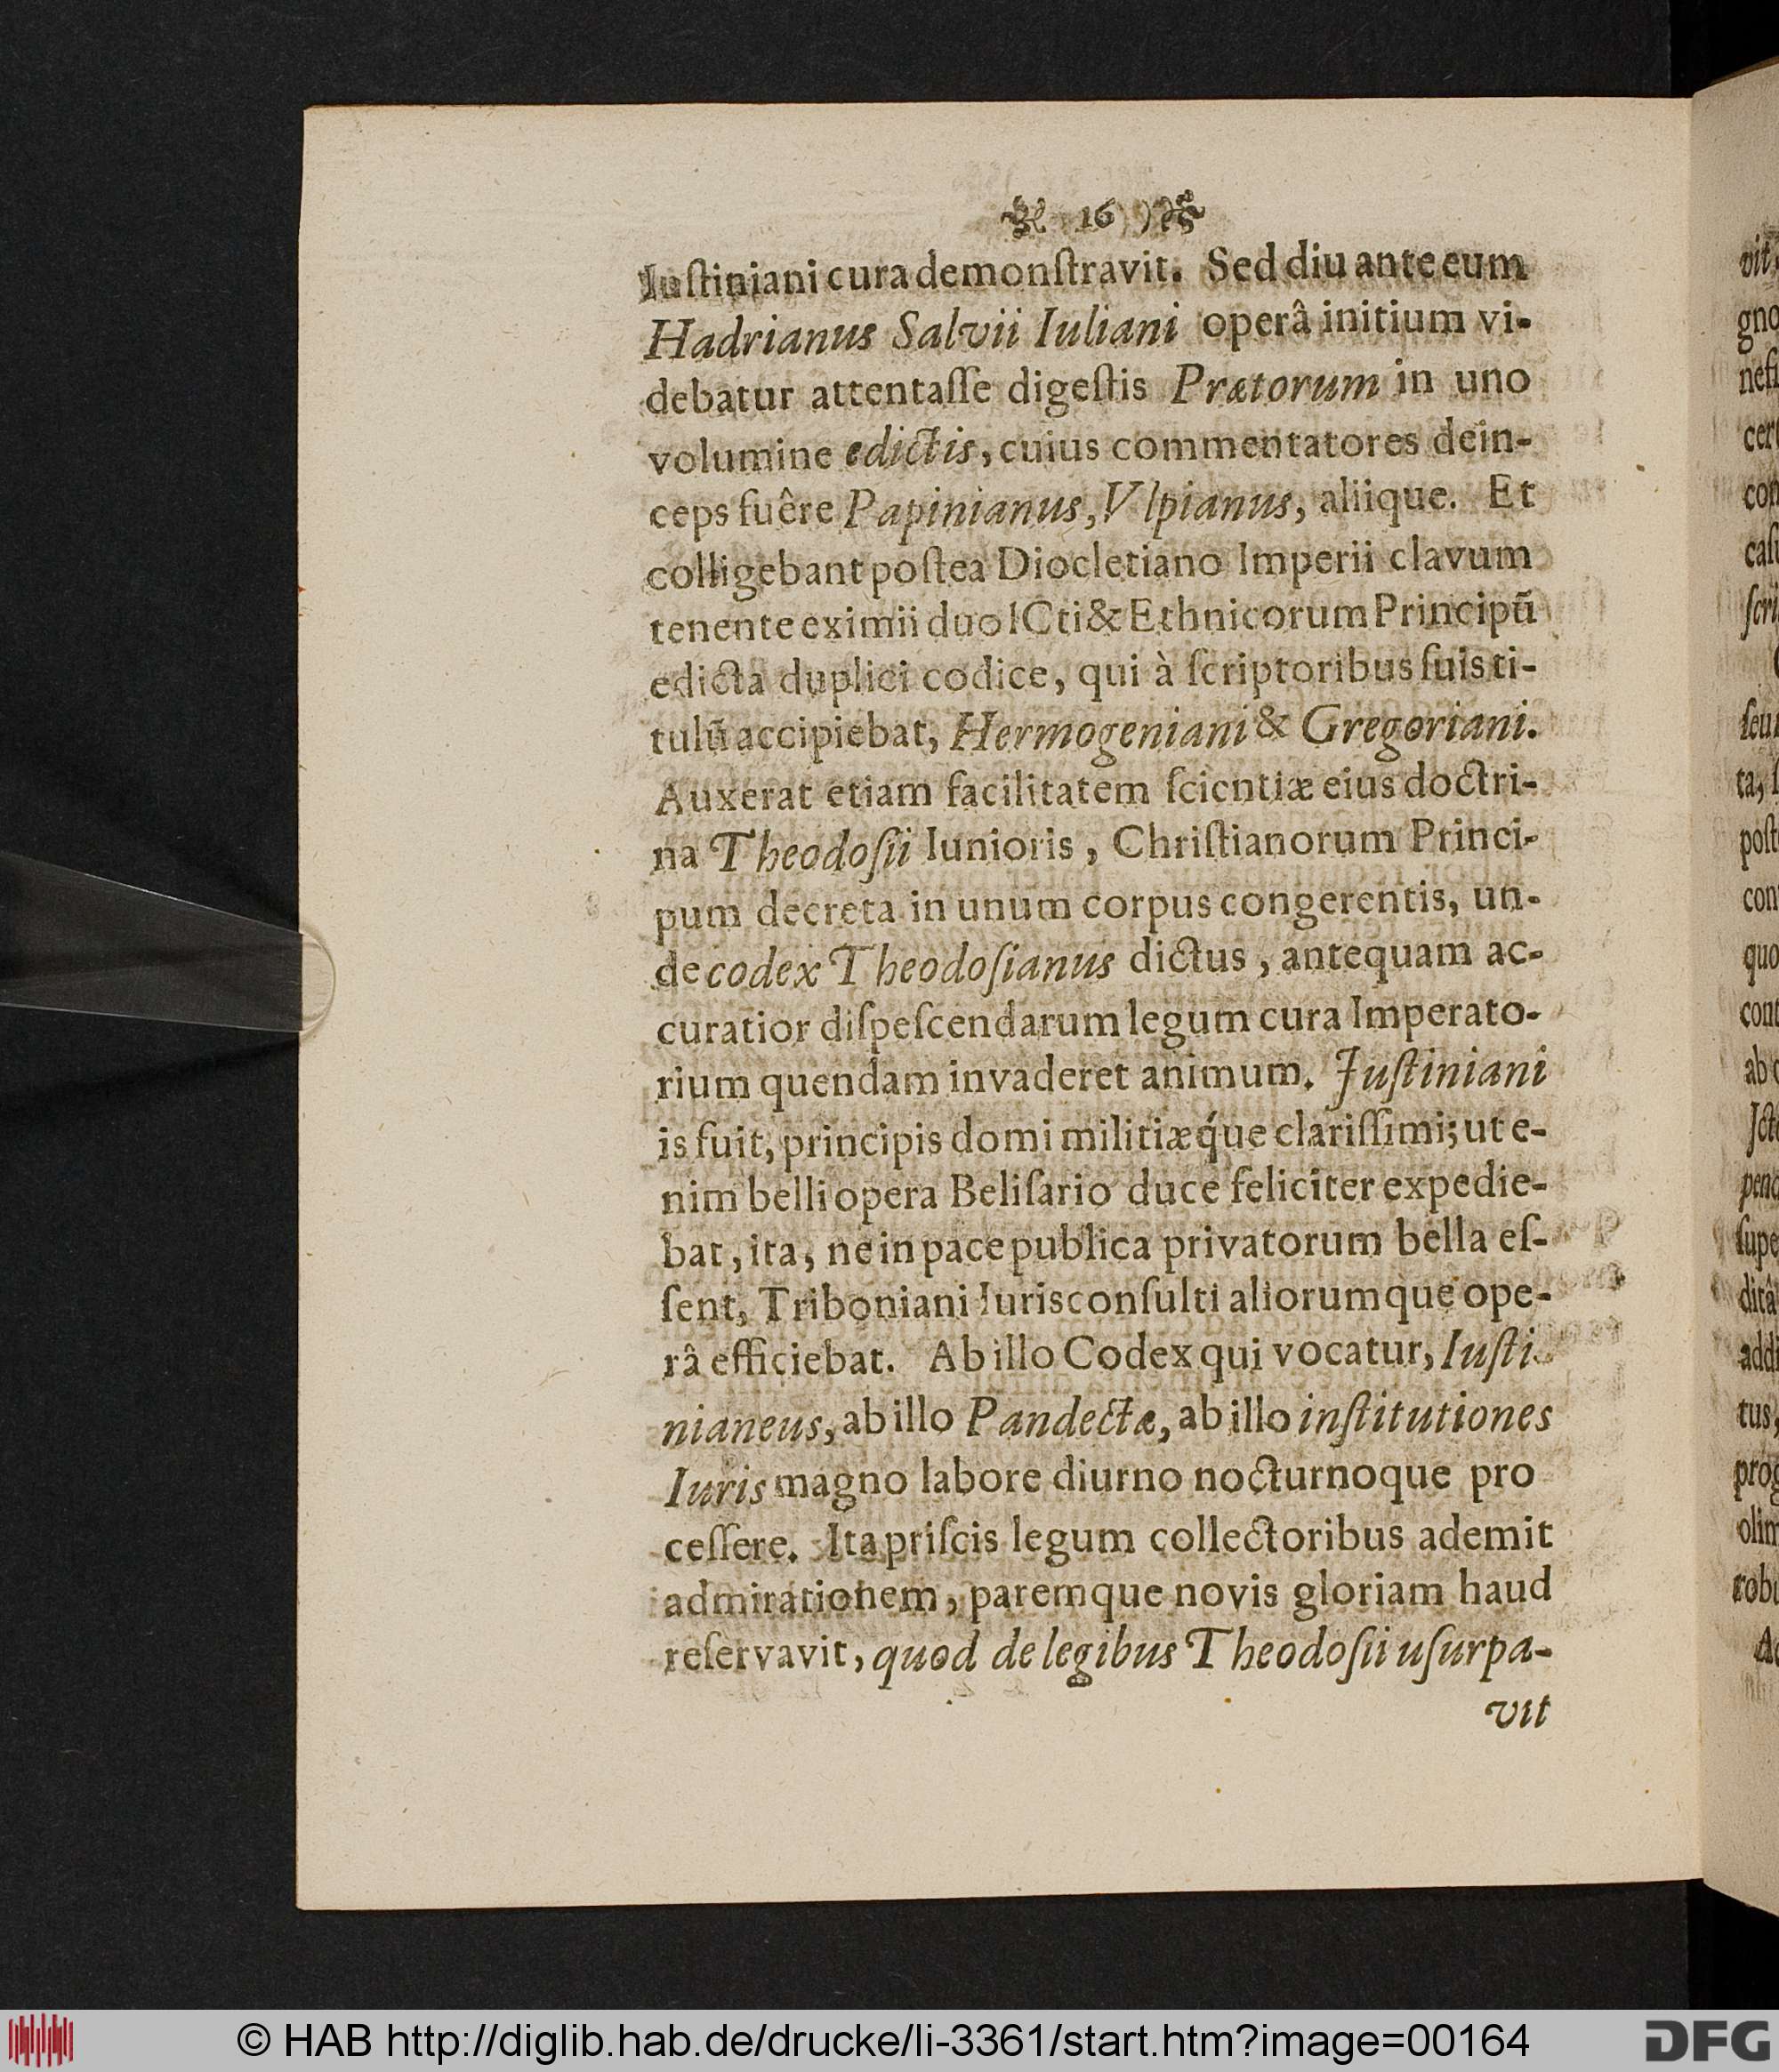 16 )
Iuſtiniani cura demonſtravit. Sed diu ante eum
Hadrianus Salvii Iuliani operâ initium vi-
debatur attentaſſe digeſtis Prætorum in uno
volumine edictis, cuius commentatores dein-
ceps fuêre Papinianus, Vlpianus, aliique. Et
colligebant poſtea Diocletiano Imperii clavum
tenente eximii duo ICti & Ethnicorum Principũ
edicta duplici codice, qui à ſcriptoribus ſuis ti-
tulũ accipiebat, Hermogeniani & Gregoriani.
Auxerat etiam facilitatem ſcientiæ eius doctri-
na Theodoſii Iunioris, Chriſtianorum Princi-
pum decreta in unum corpus congerentis, un-
de codex Theodoſianus dictus, antequam ac-
curatior diſpeſcendarum legum cura Imperato-
rium quendam invaderet animum. Juſtiniani
is fuit, principis domi militiæq́ue clariſſimi; ut e-
nim belli opera Beliſario duce feliciter expedie-
bat, ita, ne in pace publica privatorum bella eſ-
ſent, Triboniani Iurisconſulti aliorumque ope-
râ efficiebat. Ab illo Codex qui vocatur, Iuſti-
nianeus, ab illo Pandectæ, ab illo inſtitutiones
Iuris magno labore diurno nocturnoque pro
ceſſere. Ita priſcis legum collectoribus ademit
admirationem, paremque novis gloriam haud
reſervavit, quod de legibus Theodoſii uſurpa-
vit
vit,
gno
neſi
cer
con
caſu
ſcri
ſeu
ta, ſ
poſt
con
quo
cont
ab
Jct
pend
ſupe
ditâ
addi
tus,
prog
olim
robu
A
© HAB http://diglib.hab.de/drucke/li-3361/start.htm?image=00164
DFG